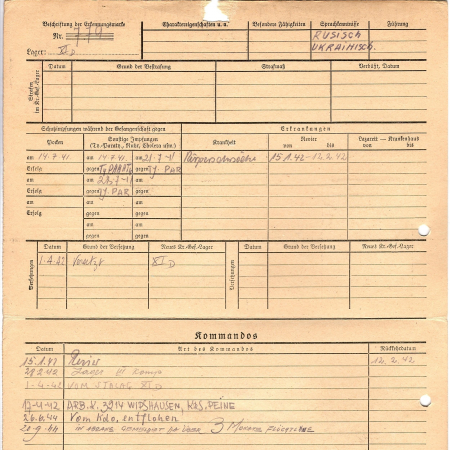 Beschriftung der Erkennungsmarke
Nr. 779
Lager: XI D
Charaktereigenschaften u. a.
Besondere Fähigkeiten
Sprachkenntnisse
Führung
RUSISCH
UKRAINISCH.
Strafen im Kr.-Gef.-Lager
Datum
Grund der Bestrafung
Strafmaß
Verbüßt, Datum
Schutzimpfungen während der Gefangenschaft gegen
Erkrankungen
Pocken
Sonstige Impfungen
(Ty.-Paraty., Ruhr, Cholera usw.)
Krankheit
Revier
von bis
Lazarett - Krankenhaus
von bis
am 14.7.41 am 14.7.41 am 21.7.41
Körperschwäche 15.1.42-12.2.42
Erfolg gegen Ty PARATY gegen TY. PAR
am am 28.7.41 am
Erfolg gegen TY. PAR gegen
am am am
Erfolg gegen gegen
am am
gegen gegen
Versetzungen
Datum
Grund der Versetzung
Neues Kr.-Gef.-Lager
Versetzungen
Datum
Grund der Versetzung
Neues Kr.-Gef.-Lager
1.4.42 Versetzt XI D
Kommandos
Datum
Art des Kommandos
Rückkehrdatum
15.1.42 Revier 12.2.42.
Lager
1-4-42 VOM STALAG XI D
17-4-42 ARB.K. 3914 WIPSHAUSEN, KRS, PEINE
26.6.44 Vom Kdo, entflohen
20-9.44 3 MONATE